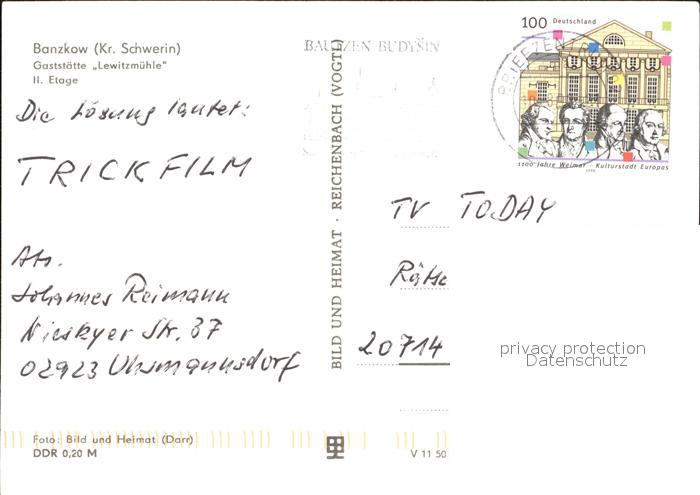 Banzkow (Kr. Schwerin)
Gaststätte „Lewitzmühle"
II. Etage
Die Lösung lautet:
TRICKFILM
Abs.
Johannes Reimann
Nieskyer Str. 37
02923 Uhsmannsdorf
Foto: Bild und Heimat (Darr)
DDR 0,20 M
BILD UND HEIMAT · REICHENBACH (VOGTL)
V 11 50
BAUTZEN BUDYŠIN
BRIEFZENTRUM
100 Deutschland
1100 Jahre Weimar - Kulturstadt Europas
1999
TV TODAY
Rätse
20714
privacy protection
Datenschutz